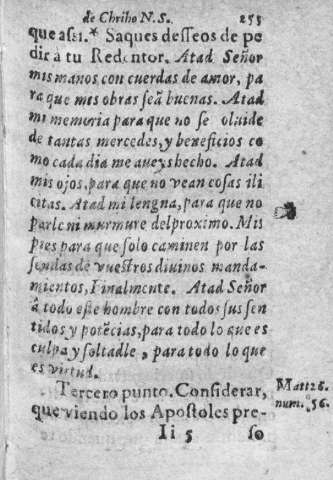 de Chriſto N.S. 255
que aſsi.* Saques deſſeos de pe
dir à tu Redentor. Atad Señor
mis manos con cuerdas de amor, pa
ra que mis obras ſeã buenas. Atad
mi memoria para que no ſe oluide
de tantas mercedes, y beneficios co
mo cada dia me aueys hecho. Atad
mis ojos, para que no vean coſas ili
citas. Atad mi lengua, para que no
parle ni murmure del proximo. Mis
pies para que ſolo caminen por las
ſendas de vueſtros diuinos manda-
mientos, Finalmente. Atad Señor
à todo eſte hombre con todos ſus ſen
tidos y potẽcias, para todo lo que es
culpa, y ſoltadle, para todo lo que
es virtud.
Tercero punto. Conſiderar,
que viendo los Apoſtoles pre-
Matt 26.
num. 56.
Ii 5 ſo